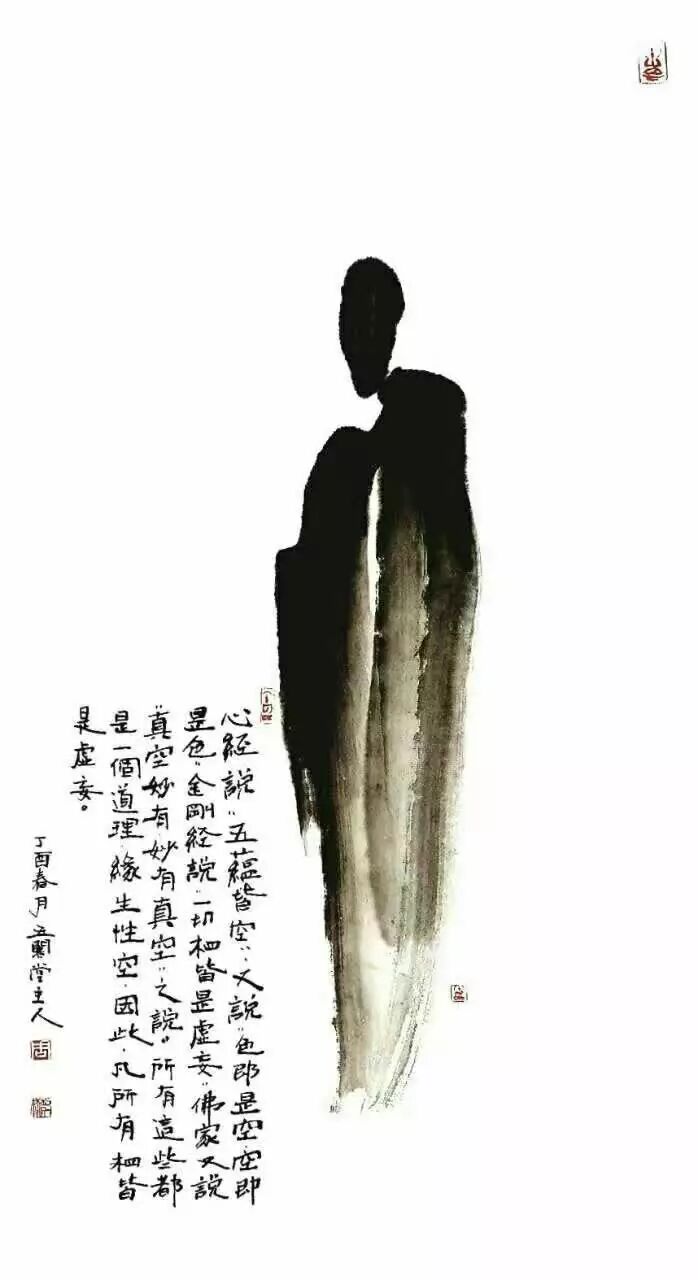 心经説“五蘊皆空”，又説“色即是空空即
是色”金剛经説“一切相皆是虚妄”佛家又説
“真空妙有妙有真空”之説。所有這些都
是一個道理，緣生性空，因此，凡所有相皆
是虚妄。
丁酉春月五蘭堂主人